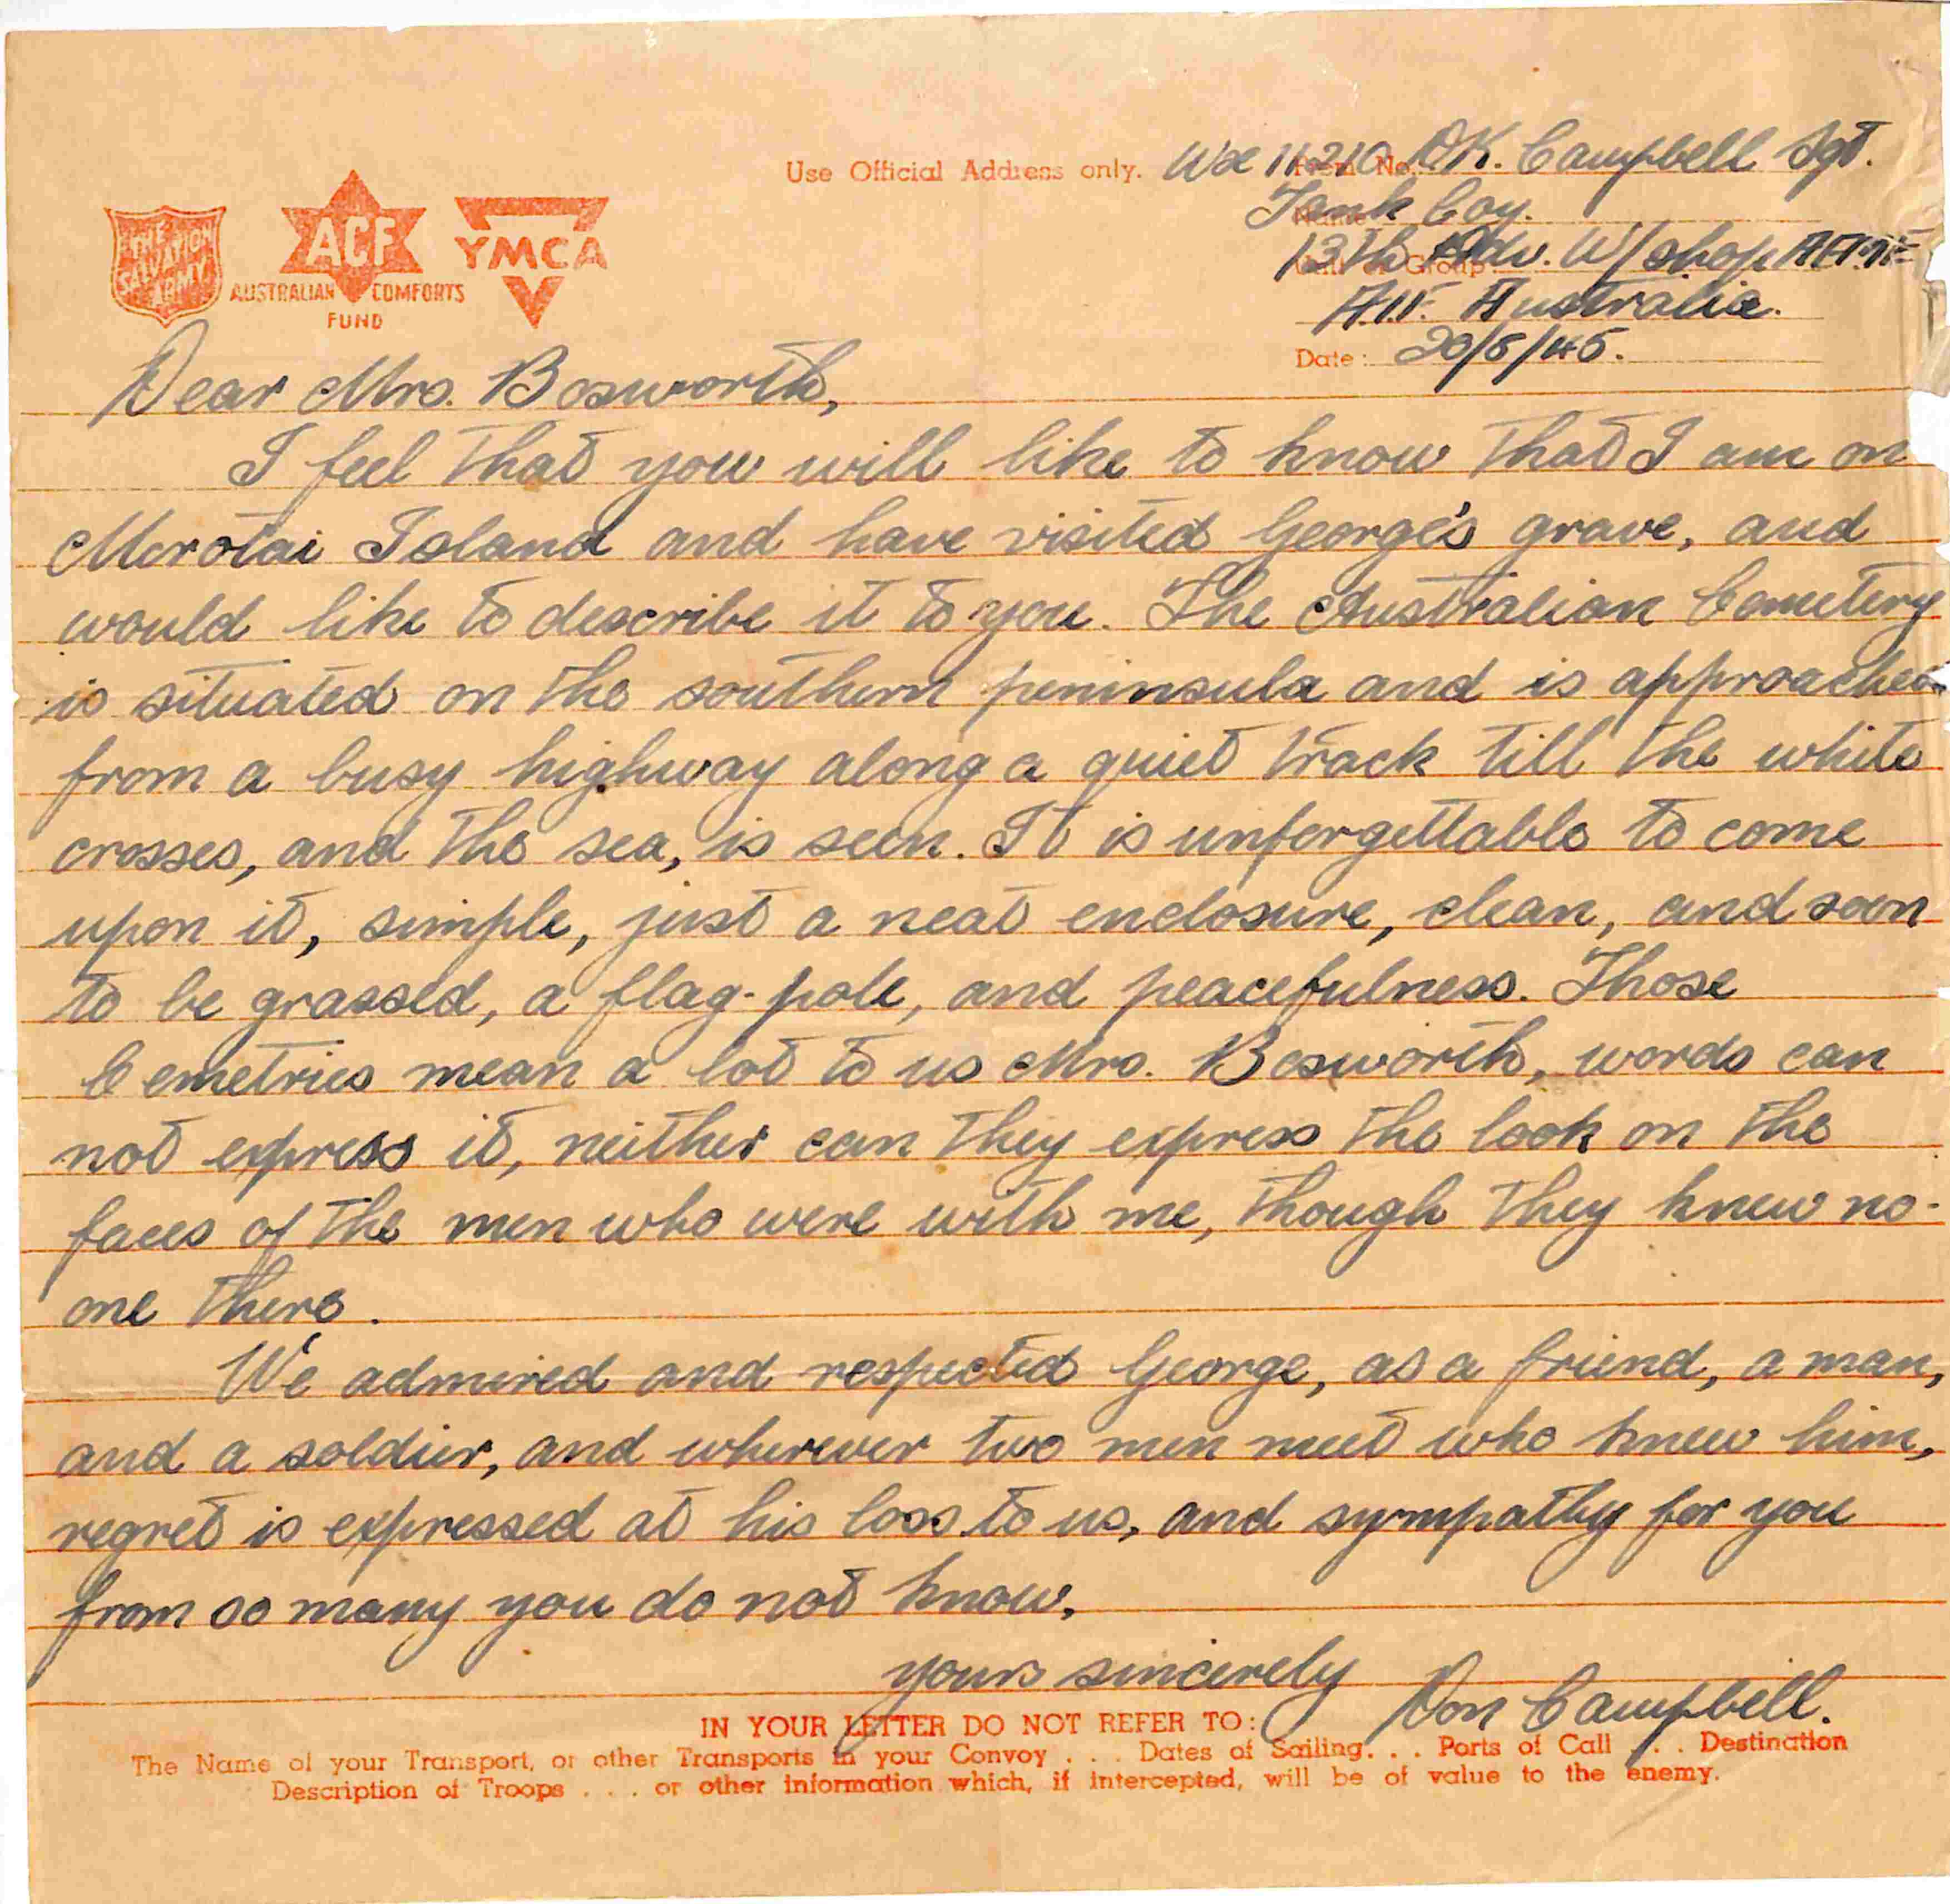 Use Official Address only. Wx 11210 DK. Campbell Sgt.
From No.
Name
Tank Coy.
13th Adv. W/shop AEME
Unit or Group
AIF. Australia.
Date: 20/6/45.
THE SALVATION ARMY
ACF
AUSTRALIAN COMFORTS
FUND
YMCA
Dear Mrs. Bosworth,
I feel that you will like to know that I am on
Morotai Island and have visited George's grave, and
would like to describe it to you. The Australian Cemetery
is situated on the southern peninsula and is approached
from a busy highway along a quiet track till the white
crosses, and the sea, is seen. It is unforgettable to come
upon it, simple, just a neat enclosure, clean, and soon
to be grassed, a flag-pole, and peacefulness. Those
Cemetries mean a lot to us Mrs. Bosworth, words can
not express it, neither can they express the look on the
faces of the men who were with me, though they knew no-
one there.
We admired and respected George, as a friend, a man,
and a soldier, and wherever two men meet who knew him,
regret is expressed at his loss to us, and sympathy for you
from so many you do not know.
yours sincerely Don Campbell.
IN YOUR LETTER DO NOT REFER TO:
The Name of your Transport, or other Transports in your Convoy . . . Dates of Sailing. . . Ports of Call . . . Destination
Description of Troops . . . or other information which, if intercepted, will be of value to the enemy.